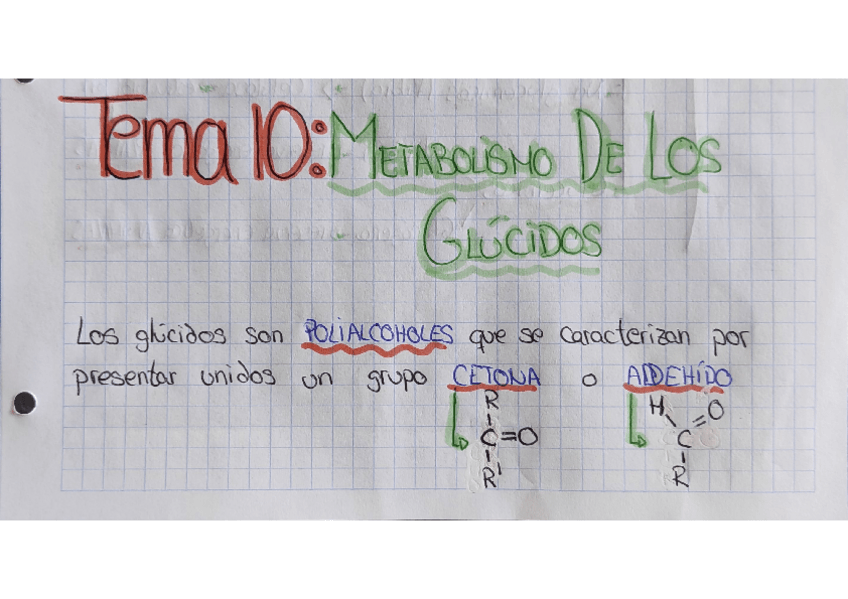 Tema 10: METABOLISMO DE LOS
GLÚCIDOS
Los glúcidos son POLIALCOHOLES que se caracterizan por
presentar unidos un grupo CETONA o ALDEHÍDO
R
C=O
R'
H O
C
R